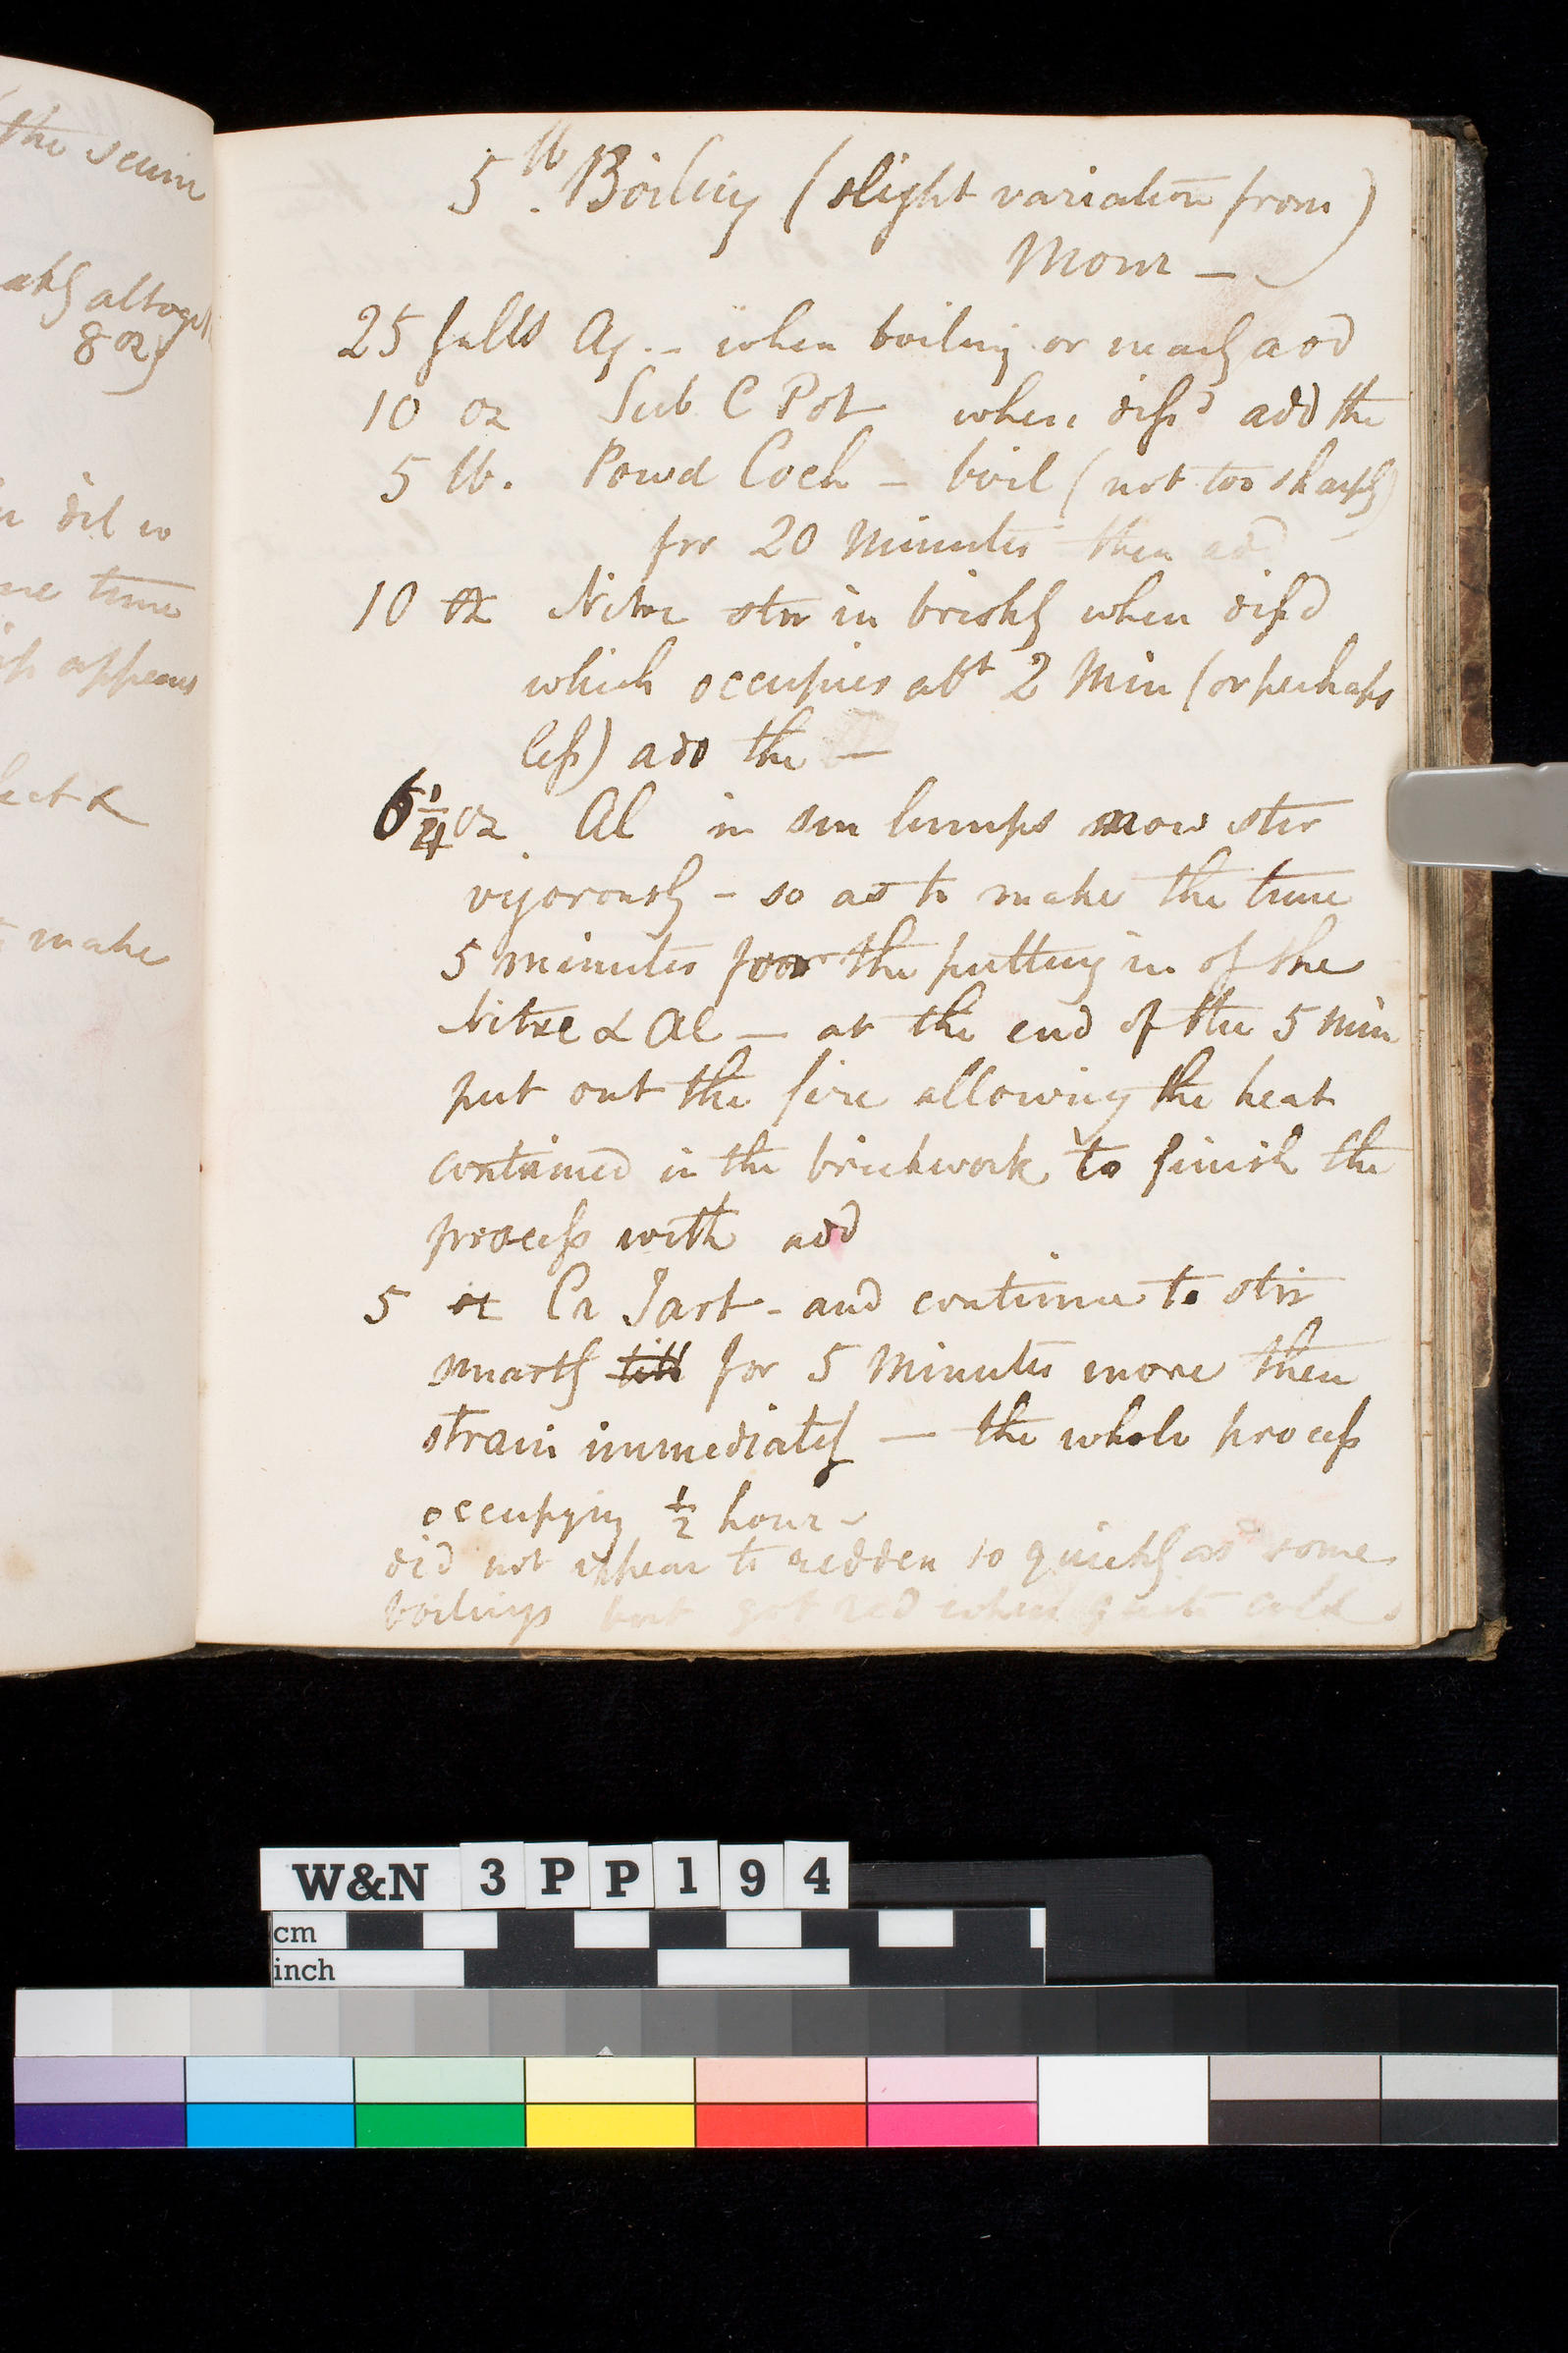 the scum
altoge
8 oz)
dil w
me time
appears
&
make
5 lb. Boiling (slight variation from)
Mour —
25 galls Aq. — when boiling or nearly add
10 oz Sub C Pot when dissd add the
5 lb. Powd Coch — boil (not too sharply)
for 20 Minutes then add
10 oz Nitre stir in briskly when dissd
which occupies abt 2 Min (or perhaps
less) add the —
6 1/4 oz Al in sm lumps now stir
vigorously — so as to make the time
5 minutes for the putting in of the
Nitre & Al — at the end of the 5 min
put out the fire allowing the heat
contained in the brickwork to finish the
process with add
5 oz Cr Tart — and continue to stir
smartly till for 5 Minutes more then
strain immediately — the whole process
occupying 1/2 hour —
did not appear to redden so quickly as some
boilings but got red when quite cold
W&N 3 P P 1 9 4
cm
inch